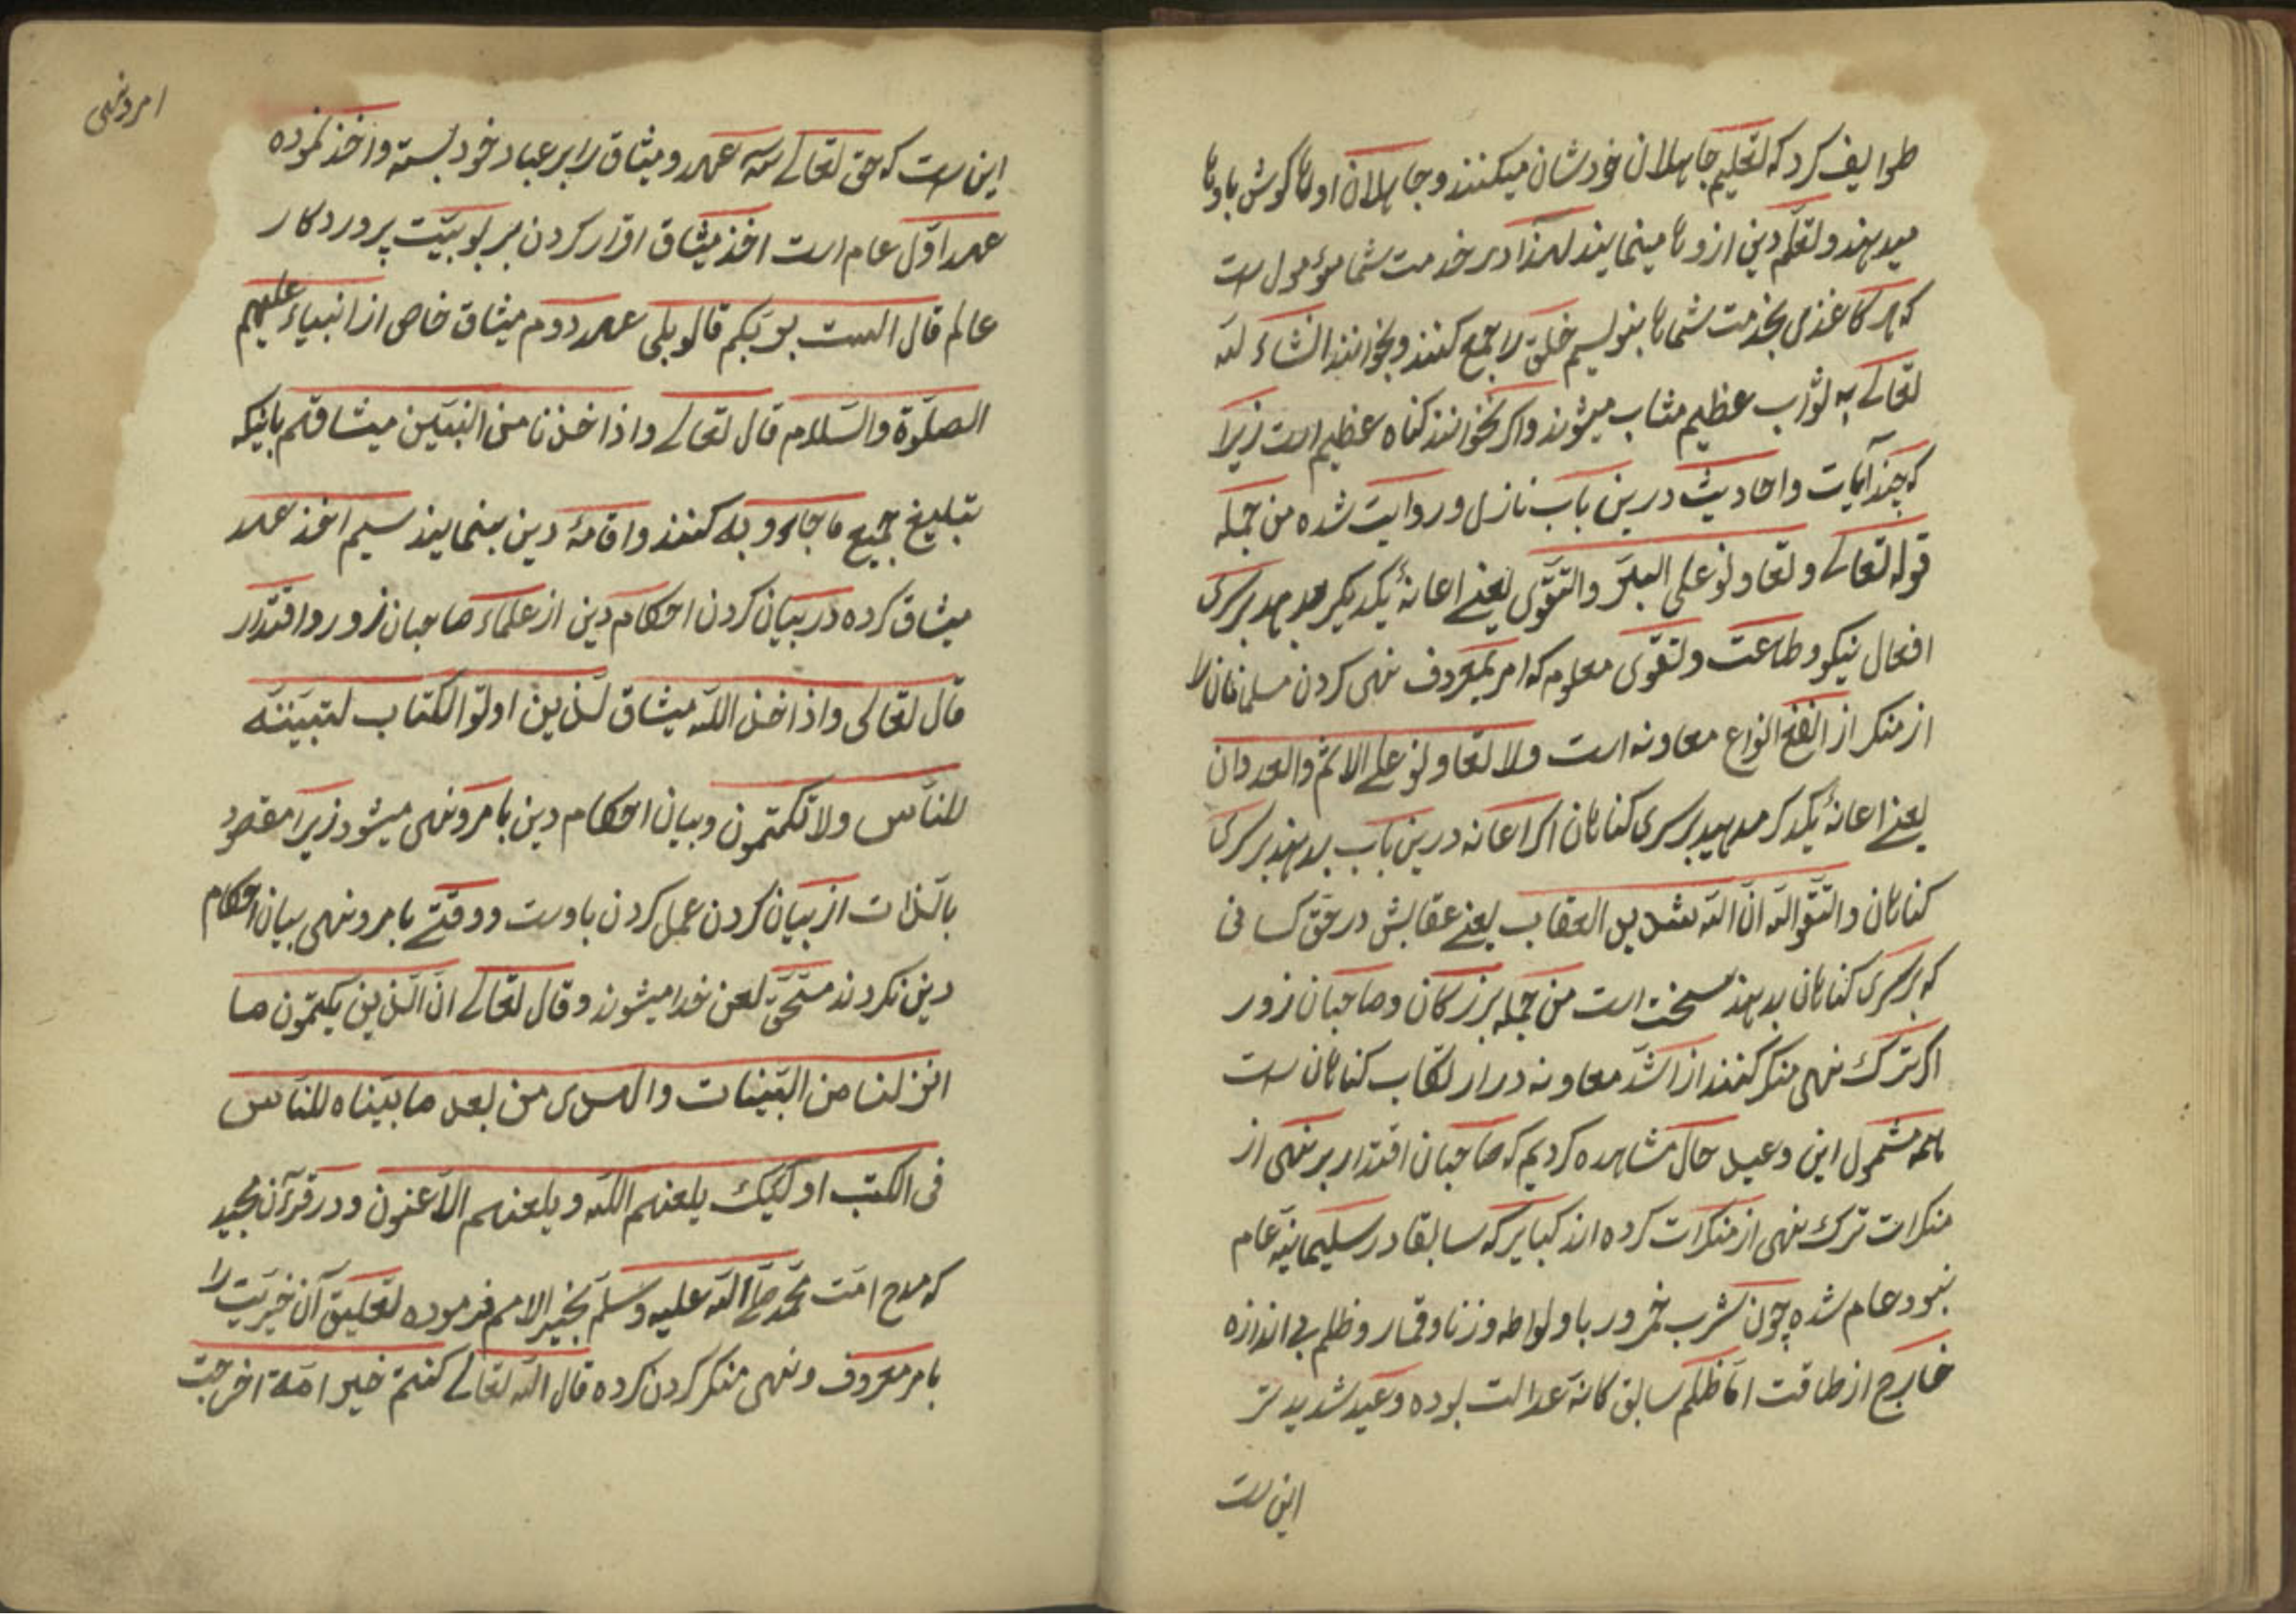 طوایف کرد که تعلیم جاهلان خودشان میکنند و جاهلان اوها کوش باوها
میدهند و تعلّم دین ازوها مینمایند لهذا در خدمت شما مؤمول است
که هر کاغذی بخدمت شماها بنویسم خلق را جمع کنند و بخوانند انشاء لله
تعالے به ثواب عظیم مثاب میشوند واکر نخوانند کناه عظیم است زیرا
که چند آیات و احادیث درین باب نازل و روایت شده من جمله
قوله تعالے و تعاونو علی البرّ والتقوی یعنے اعانهٔ یکدیکر بدهید بر سری
افعال نیکو و طاعت و تقوی معلوم که امر بمعروف نهی کردن مسلمانان را
از منکر از انفع انواع معاونه است ولا تعاونو علے الاثم والعدوان
یعنے اعانهٔ یکدکر مدهید بر سری کناهان اکر اعانه درین باب بدهند بر سری
کناهان واتّقوالله انّ الله شدید العقاب یعنے عقابش در حقّ کسانی
که بر سری کناهان بدهند سخت است من جمله بزرکان و صاحبان زور
اکر ترک نهی منکر کنند از اشدّ معاونه در ارتکاب کناهان است
همه مشمول این وعید حال مشاهده کردیم که صاحبان اقتدار بر نهی از
منکرات ترک نهی از منکرات کرده اند کبایر که سابقا در سلیمانیّه عام
نبود عام شده چون شرب خمر و ربا و لواطه و زنا و قمار و ظلم بی اندازه
خارج از طاقت امّا ظلم سابق کانّه عدالت بوده وعید شدید تر
این است
امر ونهی
این است که حق تعالے سه عهد و میثاق را بر عباد خود بسته و اخذ نموده
عهد اوّل عام است اخذ میثاق اقرار کردن بربوبیّت پروردکار
عالم قال الست بربّکم قالو بلی عهد دوم میثاق خاص از انبیاء علیهم
الصلوة والسّلام قال تعالے واذ اخذنا من النبیّین میثاقهم باینکه
تبلیغ جمیع ما جاءو به کنند و اقامهٔ دین بنمایند سیم اخذ عهد
میثاق کرده در بیان کردن احکام دین از علماء صاحبان زور و اقتدار
قال تعالی واذ اخذ اللّه میثاق لّذین اوتو الکتاب لتبیّننّه
للنّاس ولا تکتمون و بیان احکام دین بامر ونهی میشود زیرا مقصود
بالذّات از بیان کردن عمل کردن باوست و وقتے بامر ونهی بیان احکام
دین نکردند مستحقّ لعن خدا میشوند و قال تعالے انّ الّذین یکتمون ما
انزلنا من البیّنات والهدی من بعد ما بیّناه للنّاس
فی الکتب اولئیک یلعنهم اللّه و یلعنهم اللّاعنون و در قرآن مجید
که مدح امّت محمّد صلّے اللّه علیه وسلّم بخیر الامم فرموده تعلیق آن خیریّت را
بامر معروف و نهی منکر کردن کرده قال اللّه تعالے کنتم خیر امّة اخرجت